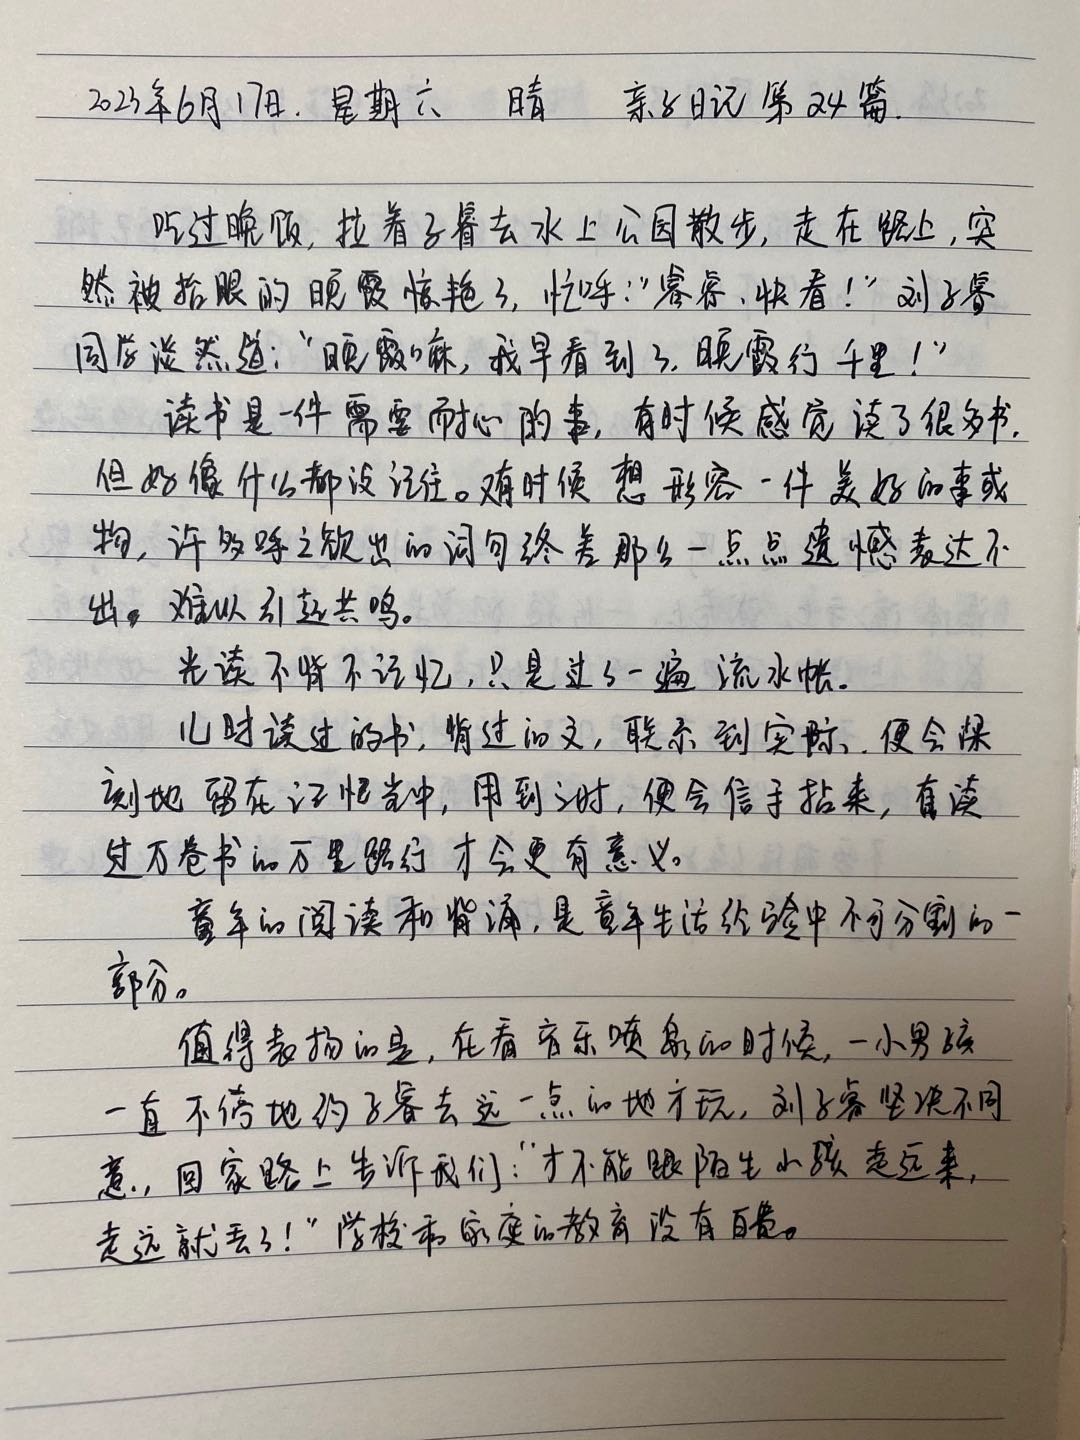 2023年6月17日. 星期六 晴 亲子日记第24篇.
吃过晚饭,拉着子睿去水上公园散步,走在路上,突
然被抬眼的晚霞惊艳了,忙呼:“睿睿、快看!”刘子睿
同学淡然道:“晚霞嘛,我早看到了,晚霞行千里!”
读书是一件需要耐心的事,有时候感觉读了很多书,
但好像什么都没记住。有时候想形容一件美好的事或
物,许多呼之欲出的词句终差那么一点点遗憾表达不
出。难以引起共鸣。
光读不背不记忆,只是过了一遍流水帐。
儿时读过的书,背过的文,联系到实际、便会深
刻地留在记忆当中,用到之时,便会信手拈来,有读
过万卷书的万里路行才会更有意义。
童年的阅读和背诵,是童年生活经验中不可分割的一
部分。
值得表扬的是,在看音乐喷泉的时候,一小男孩
一直不停地约子睿去远一点的地方玩,刘子睿坚决不同
意.,回家路上告诉我们:“才不能跟陌生小孩走远来,
走远就丢了!”学校和家庭的教育没有白费。